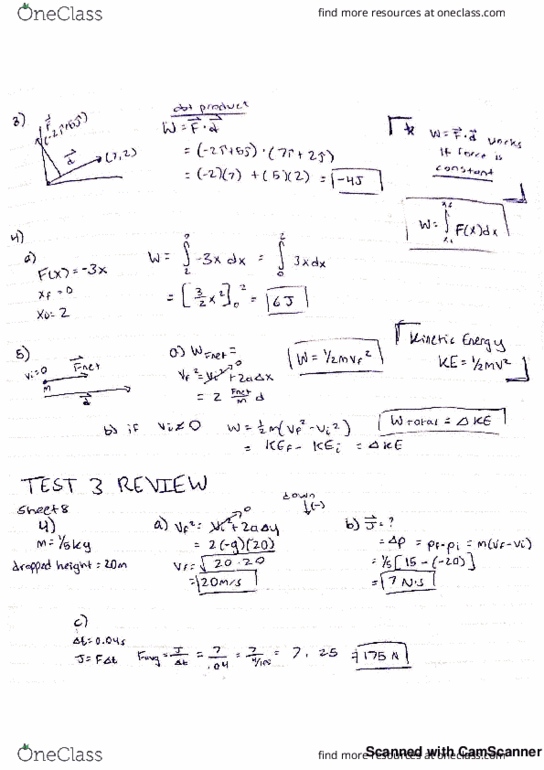 OneClass
find more resources at oneclass.com
3)
F
(-2î+5ĵ)
d
(7,2)
dot product
W = F · d
= (-2î+5ĵ) · (7î + 2ĵ)
= (-2)(7) + (5)(2) = -4J
* W = F · d works
if force is
constant
W = ∫ F(x)dx
4)
a)
F(x) = -3x
x_f = 0
x_0 = 2
W = ∫_2^0 -3x dx = ∫_0^2 3x dx
= [3/2 x²]_0^2 = 6J
5)
v_i=0
F_net
m
d
a) W_Fnet =
v_f² = v_i² + 2aΔx
0
= 2 Fnet/m d
W = 1/2mv_f²
Kinetic Energy
KE = 1/2mv²
b) if v_i ≠ 0 W = 1/2m(v_f² - v_i²)
= KE_f - KE_i = ΔKE
W_TOTAL = ΔKE
TEST 3 REVIEW
Sheet 8
4)
m = 1/5kg
dropped height = 20m
a) v_f² = v_i² + 2aΔy
0
= 2(-g)(20)
v_f = √20·20
= 20m/s
down
↓(-)
b) J = ?
= Δp = p_f - p_i = m(v_f - v_i)
= 1/5[15 - (-20)]
= 7 N·s
c)
Δt = 0.04s
J = FΔt
F_avg = J/Δt = 7/.04 = 7/4/100 = 7 · 25 = 175 N
OneClass
find more resources at oneclass.com
Scanned with CamScanner